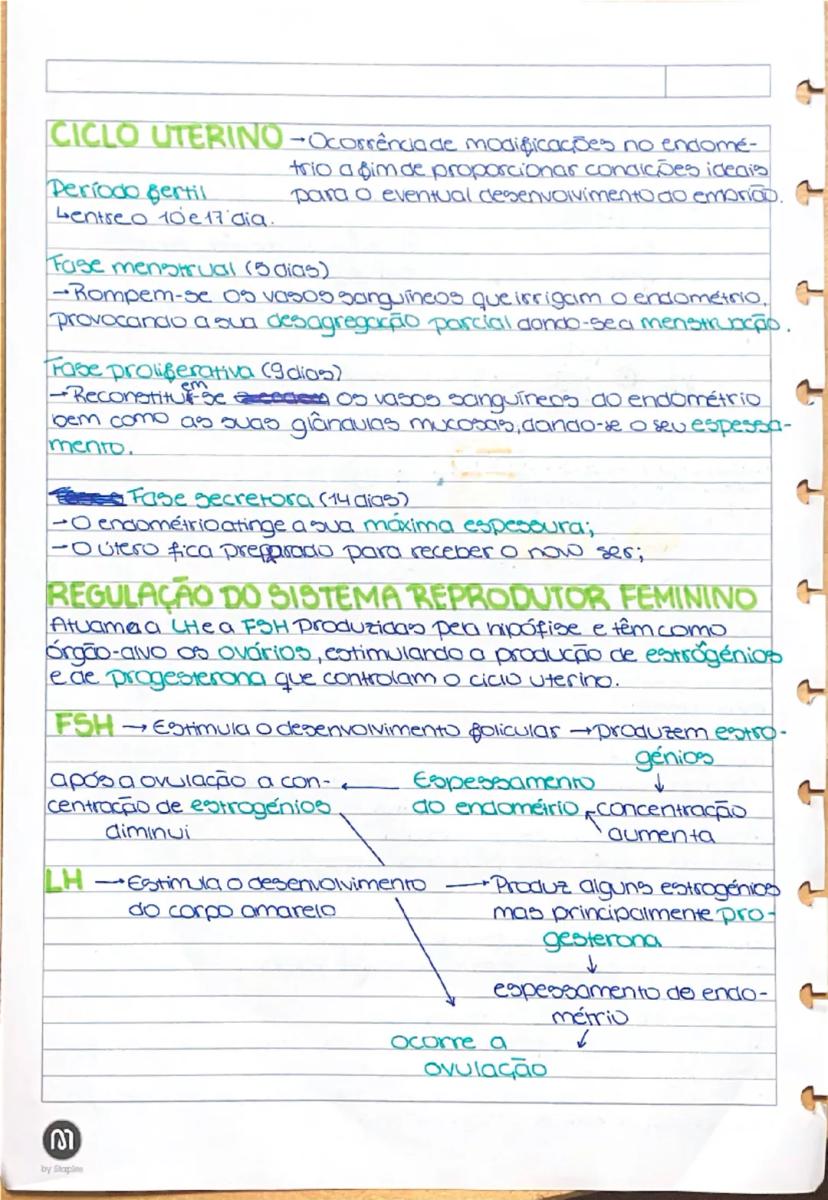 CICLO UTERINO → Ocorrência de modificações no endomé-
trio a fim de proporcionar condições ideais
Período fertil para o eventual desenvolvimento do embrião.
↳ entre o 10º e 17º dia.
Fase menstrual (5 dias)
→ Rompem-se os vasos sanguíneos que irrigam o endométrio,
provocando a sua desagregação parcial dando-se a menstruação.
Fase proliferativa (9 dias)
→ Reconstituem-se os vasos sanguíneos do endométrio
bem como as suas glândulas mucosas, dando-se o seu espessa-
mento.
Fase secretora (14 dias)
→ O endométrio atinge a sua máxima espessura;
→ O útero fica preparado para receber o novo ser;
REGULAÇÃO DO SISTEMA REPRODUTOR FEMININO
Atuam a LH e a FSH produzidas pela hipófise e têm como
órgão-alvo os ovários, estimulando a produção de estrogénios
e de progesterona que controlam o ciclo uterino.
FSH → Estimula o desenvolvimento folicular → produzem estro-
génios
↓
após a ovulação a con- ← Espessamento
centração de estrogénios do endométrio ← concentração
diminui aumenta
LH → Estimula o desenvolvimento → Produz alguns estrogénios
do corpo amarelo mas principalmente pro-
gesterona
↓
espessamento do endo-
métrio
↓
ocorre a
ovulação
by Staples